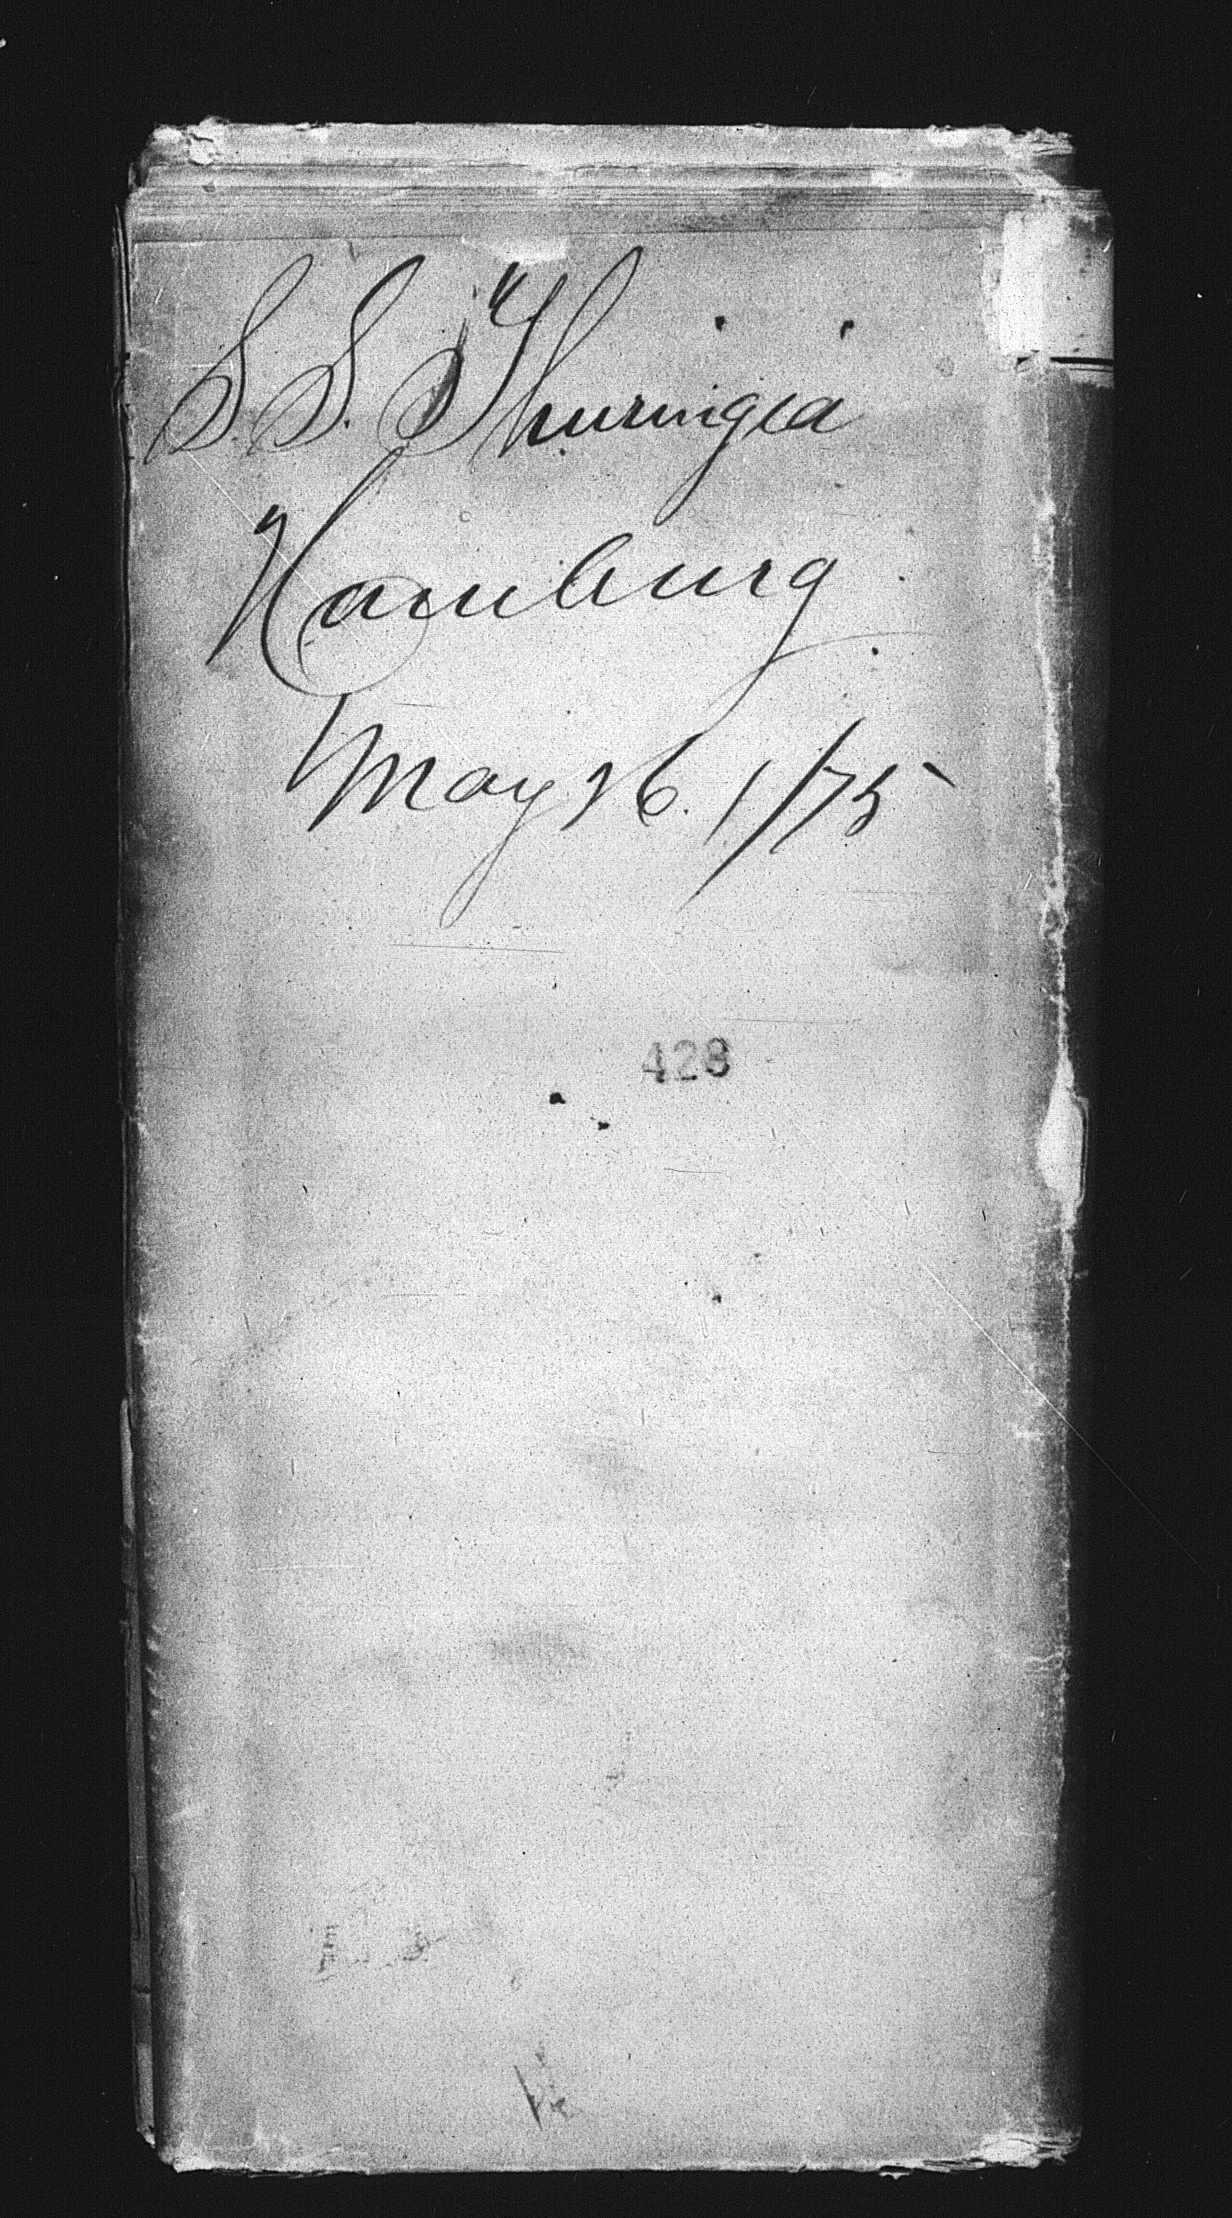 S. S. Thuringia
Hamburg
May 26. 1/75
428